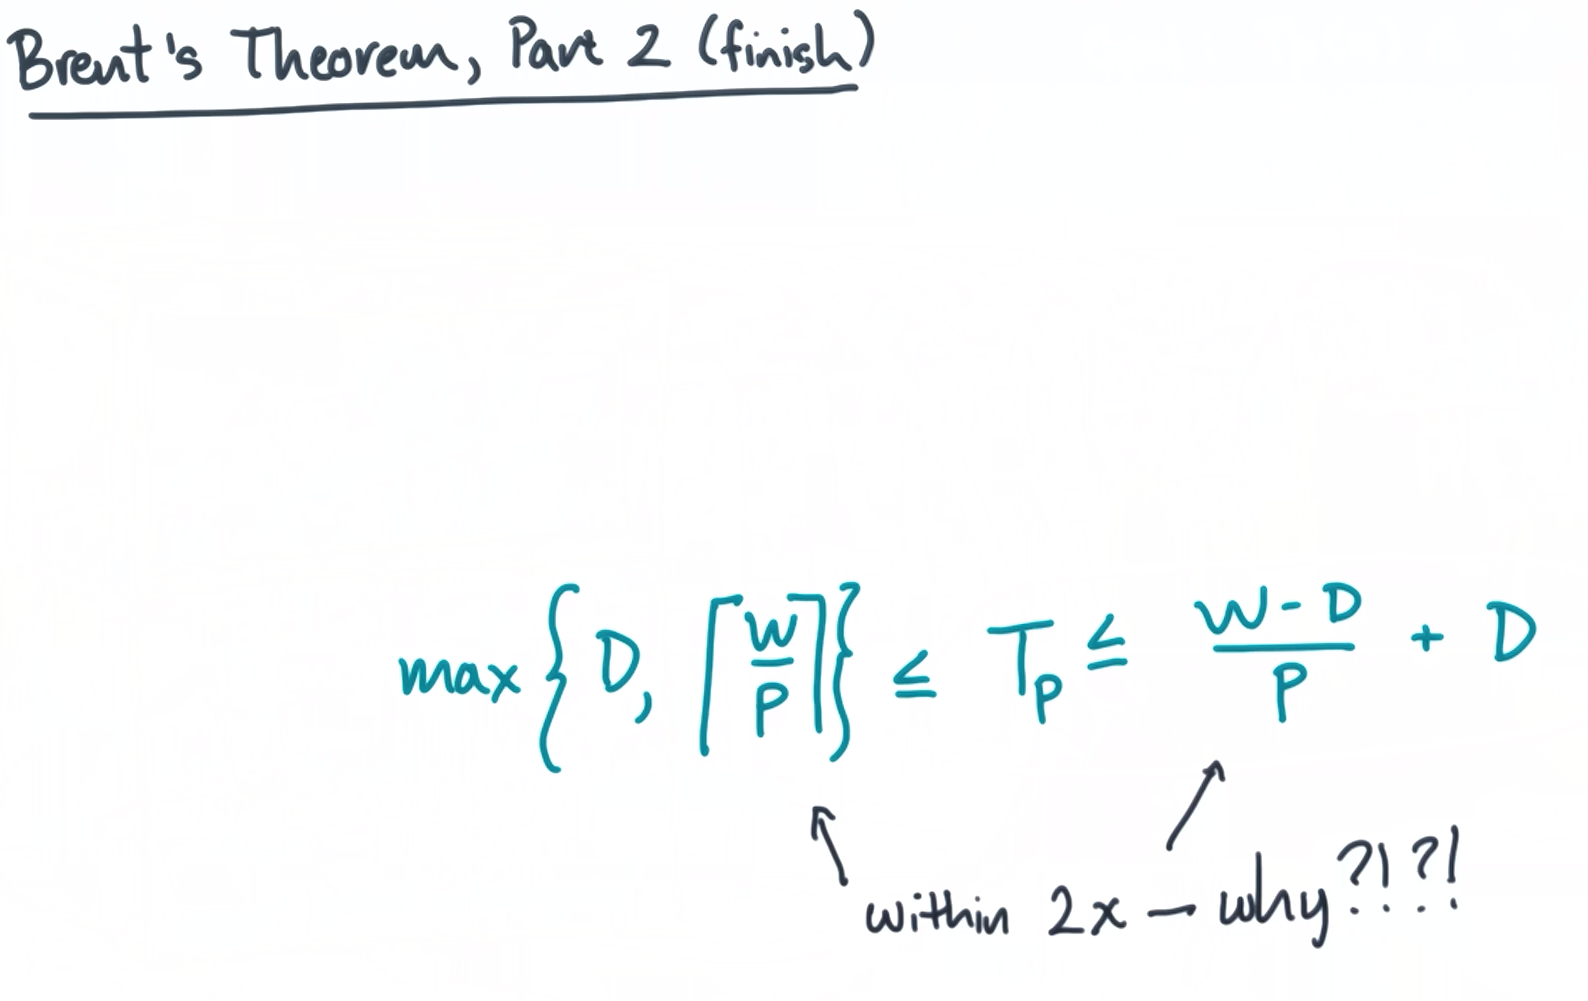 Brent's Theorem, Part 2 (finish)
max { D, ⌈ W/P ⌉ } ≤ T_P ≤ (W - D)/P + D
within 2x — why?!?!